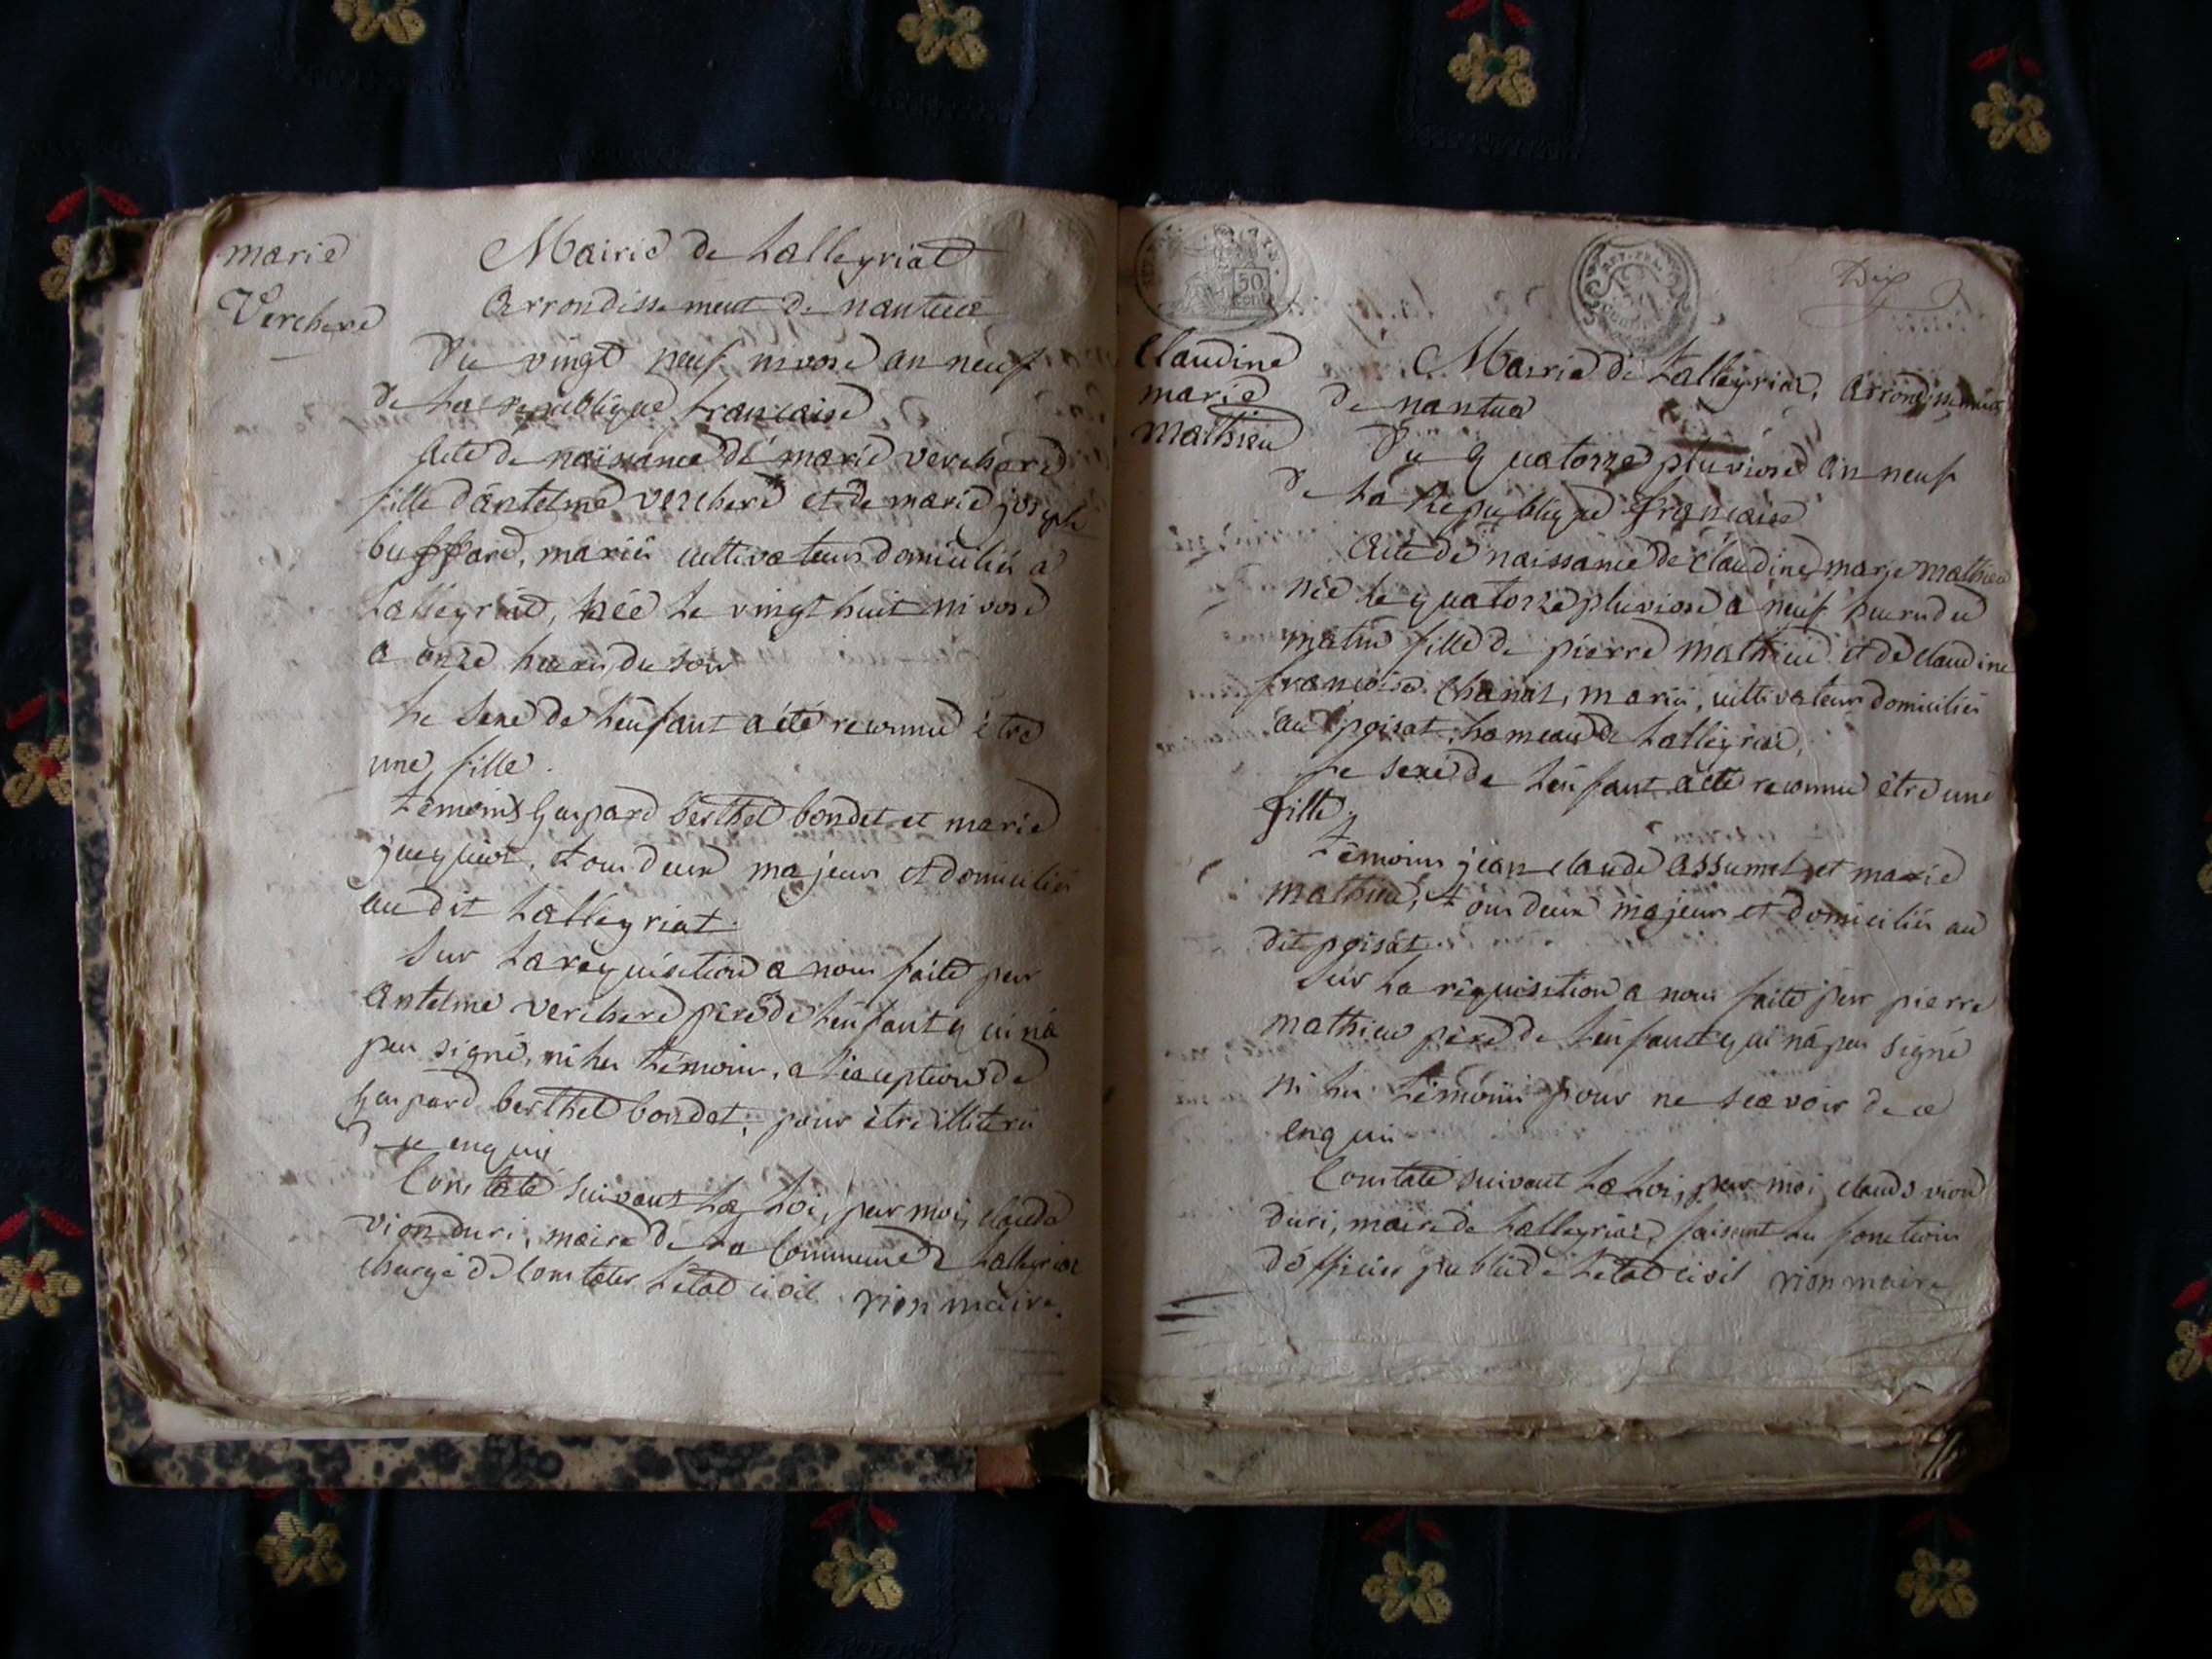 marie
Verchere
Mairie de Lalleyriat
Arrondissement de nantua
Du vingt neuf nivose an neuf
de La republique francaise
Acte de naissance de marie verchere
fille d'antelme verchere et de marie joseph
buffard, mariés cultivateurs domiciliés a
Lalleyriat, née Le vingt huit nivose
a onze heures du soir
Le sexe de L'enfant a été reconnu être
une fille.
Témoins Gaspard berthet bondet et marie
tous deux majeurs et domiciliés
au dit Lalleyriat.
Sur La requisition a nous faite par
Antelme verchere pere de L'enfant qui n'a
pas signé, ni les témoins, a l'exception de
gaspard berthet bondet, pour être illiterés
de ce enquis
Constaté suivant La Loi, par moi, claude
vion duri, maire de La Commune de Lalleyriat
chargé de constater L'état civil vion maire.
50
REP. FRA.
Dix
Claudine
marie
mathieu
Mairie de Lalleyriat, arrondissement
de nantua
Du quatorze pluviose an neuf
de La Republique francaise
Acte de naissance de claudine marie mathieu
née Le quatorze pluviose a neuf heures du
matin fille de pierre mathieu et de claudine
francoise mariés, cultivateurs domiciliés
au poisat, hameau de Lalleyriat,
Le sexe de L'enfant a été reconnu être une
fille.
Témoins jean claude assumel et marie
mathieu, tous deux majeurs et domiciliés au
dit poisat.
Sur La requisition a nous faite par pierre
mathieu père de L'enfant qui n'a pas signé
ni les témoins pour ne scavoir de ce
enquis
Constaté suivant La Loi, par moi, claude vion
duri, maire de Lalleyriat, faisant les fonctions
d'officier public de L'état civil vion maire